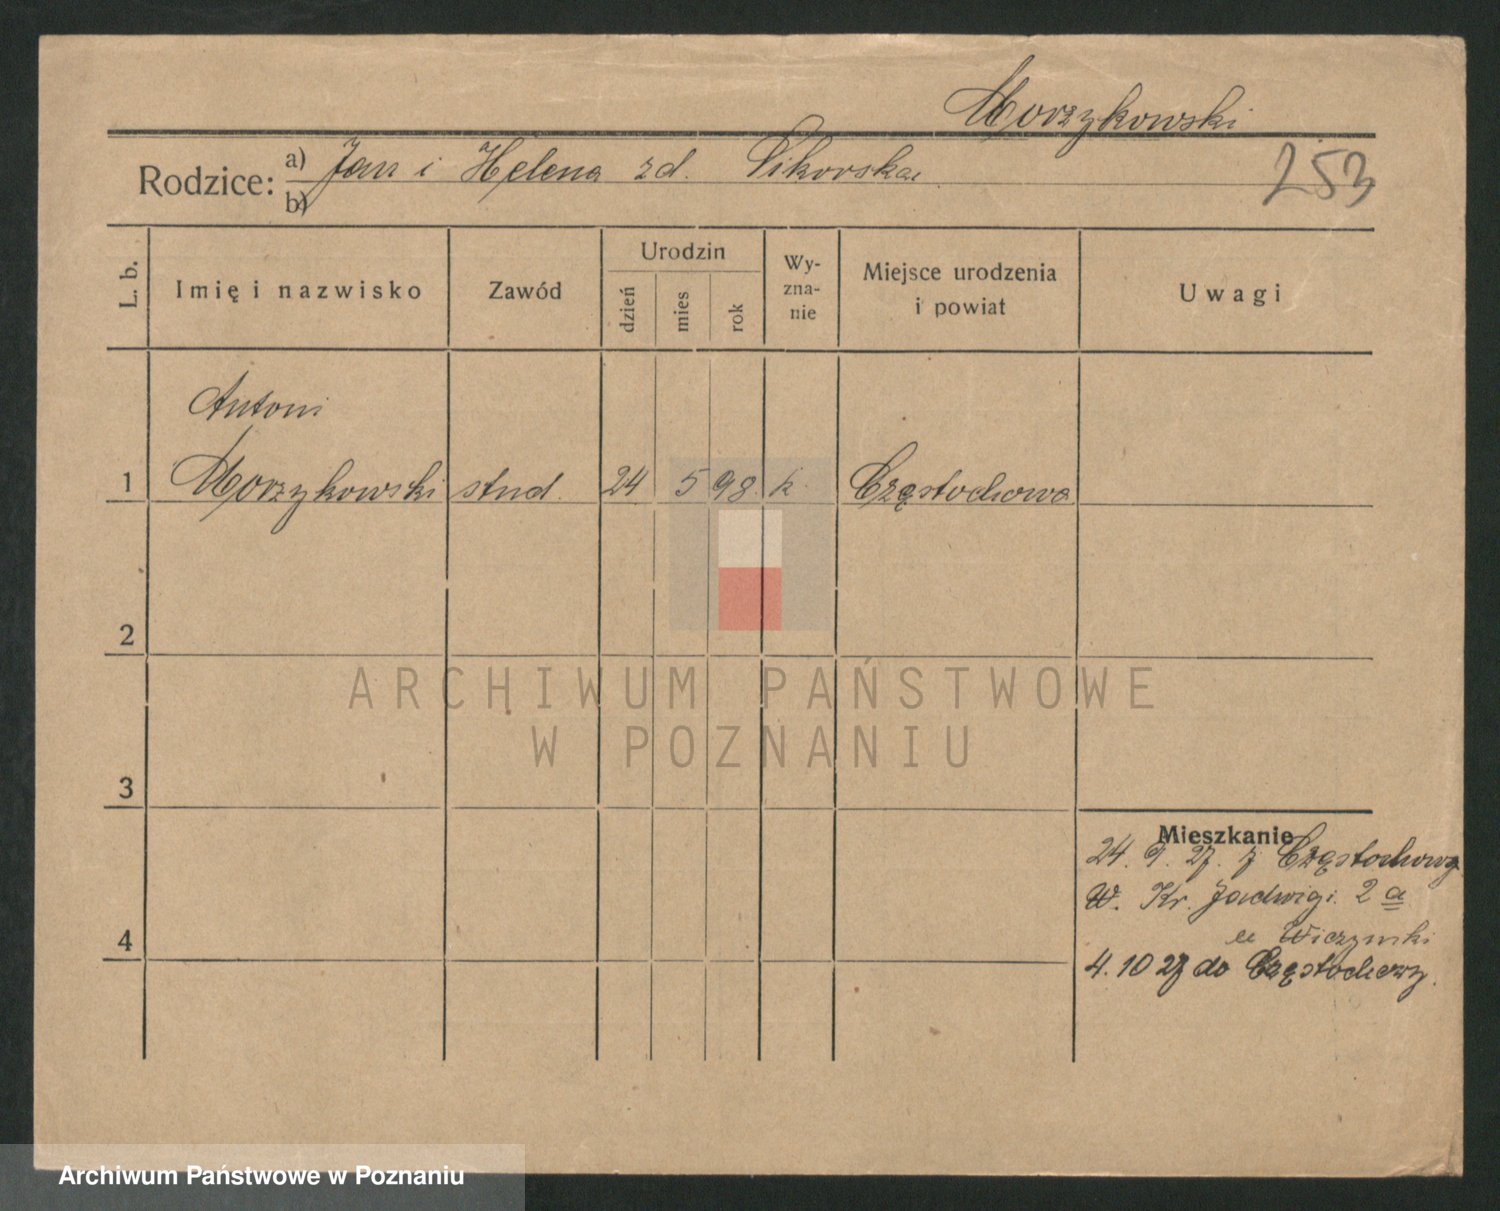 Morzykowski
Rodzice: a) Jan i Helena zd. Sikorska
b)
253
L. b.
Imię i nazwisko
Zawód
Urodzin
dzień
mies
rok
Wy-
zna-
nie
Miejsce urodzenia
i powiat
Uwagi
Antoni
1 Morzykowski stud. 24 5 98 k. Częstochowa
2
3
4
Mieszkanie
24. 9. 27. z Częstochowy
W. Kr. Jadwigi 2 a
u
4. 10 27 do Częstochowy.
ARCHIWUM PAŃSTWOWE
W POZNANIU
Archiwum Państwowe w Poznaniu